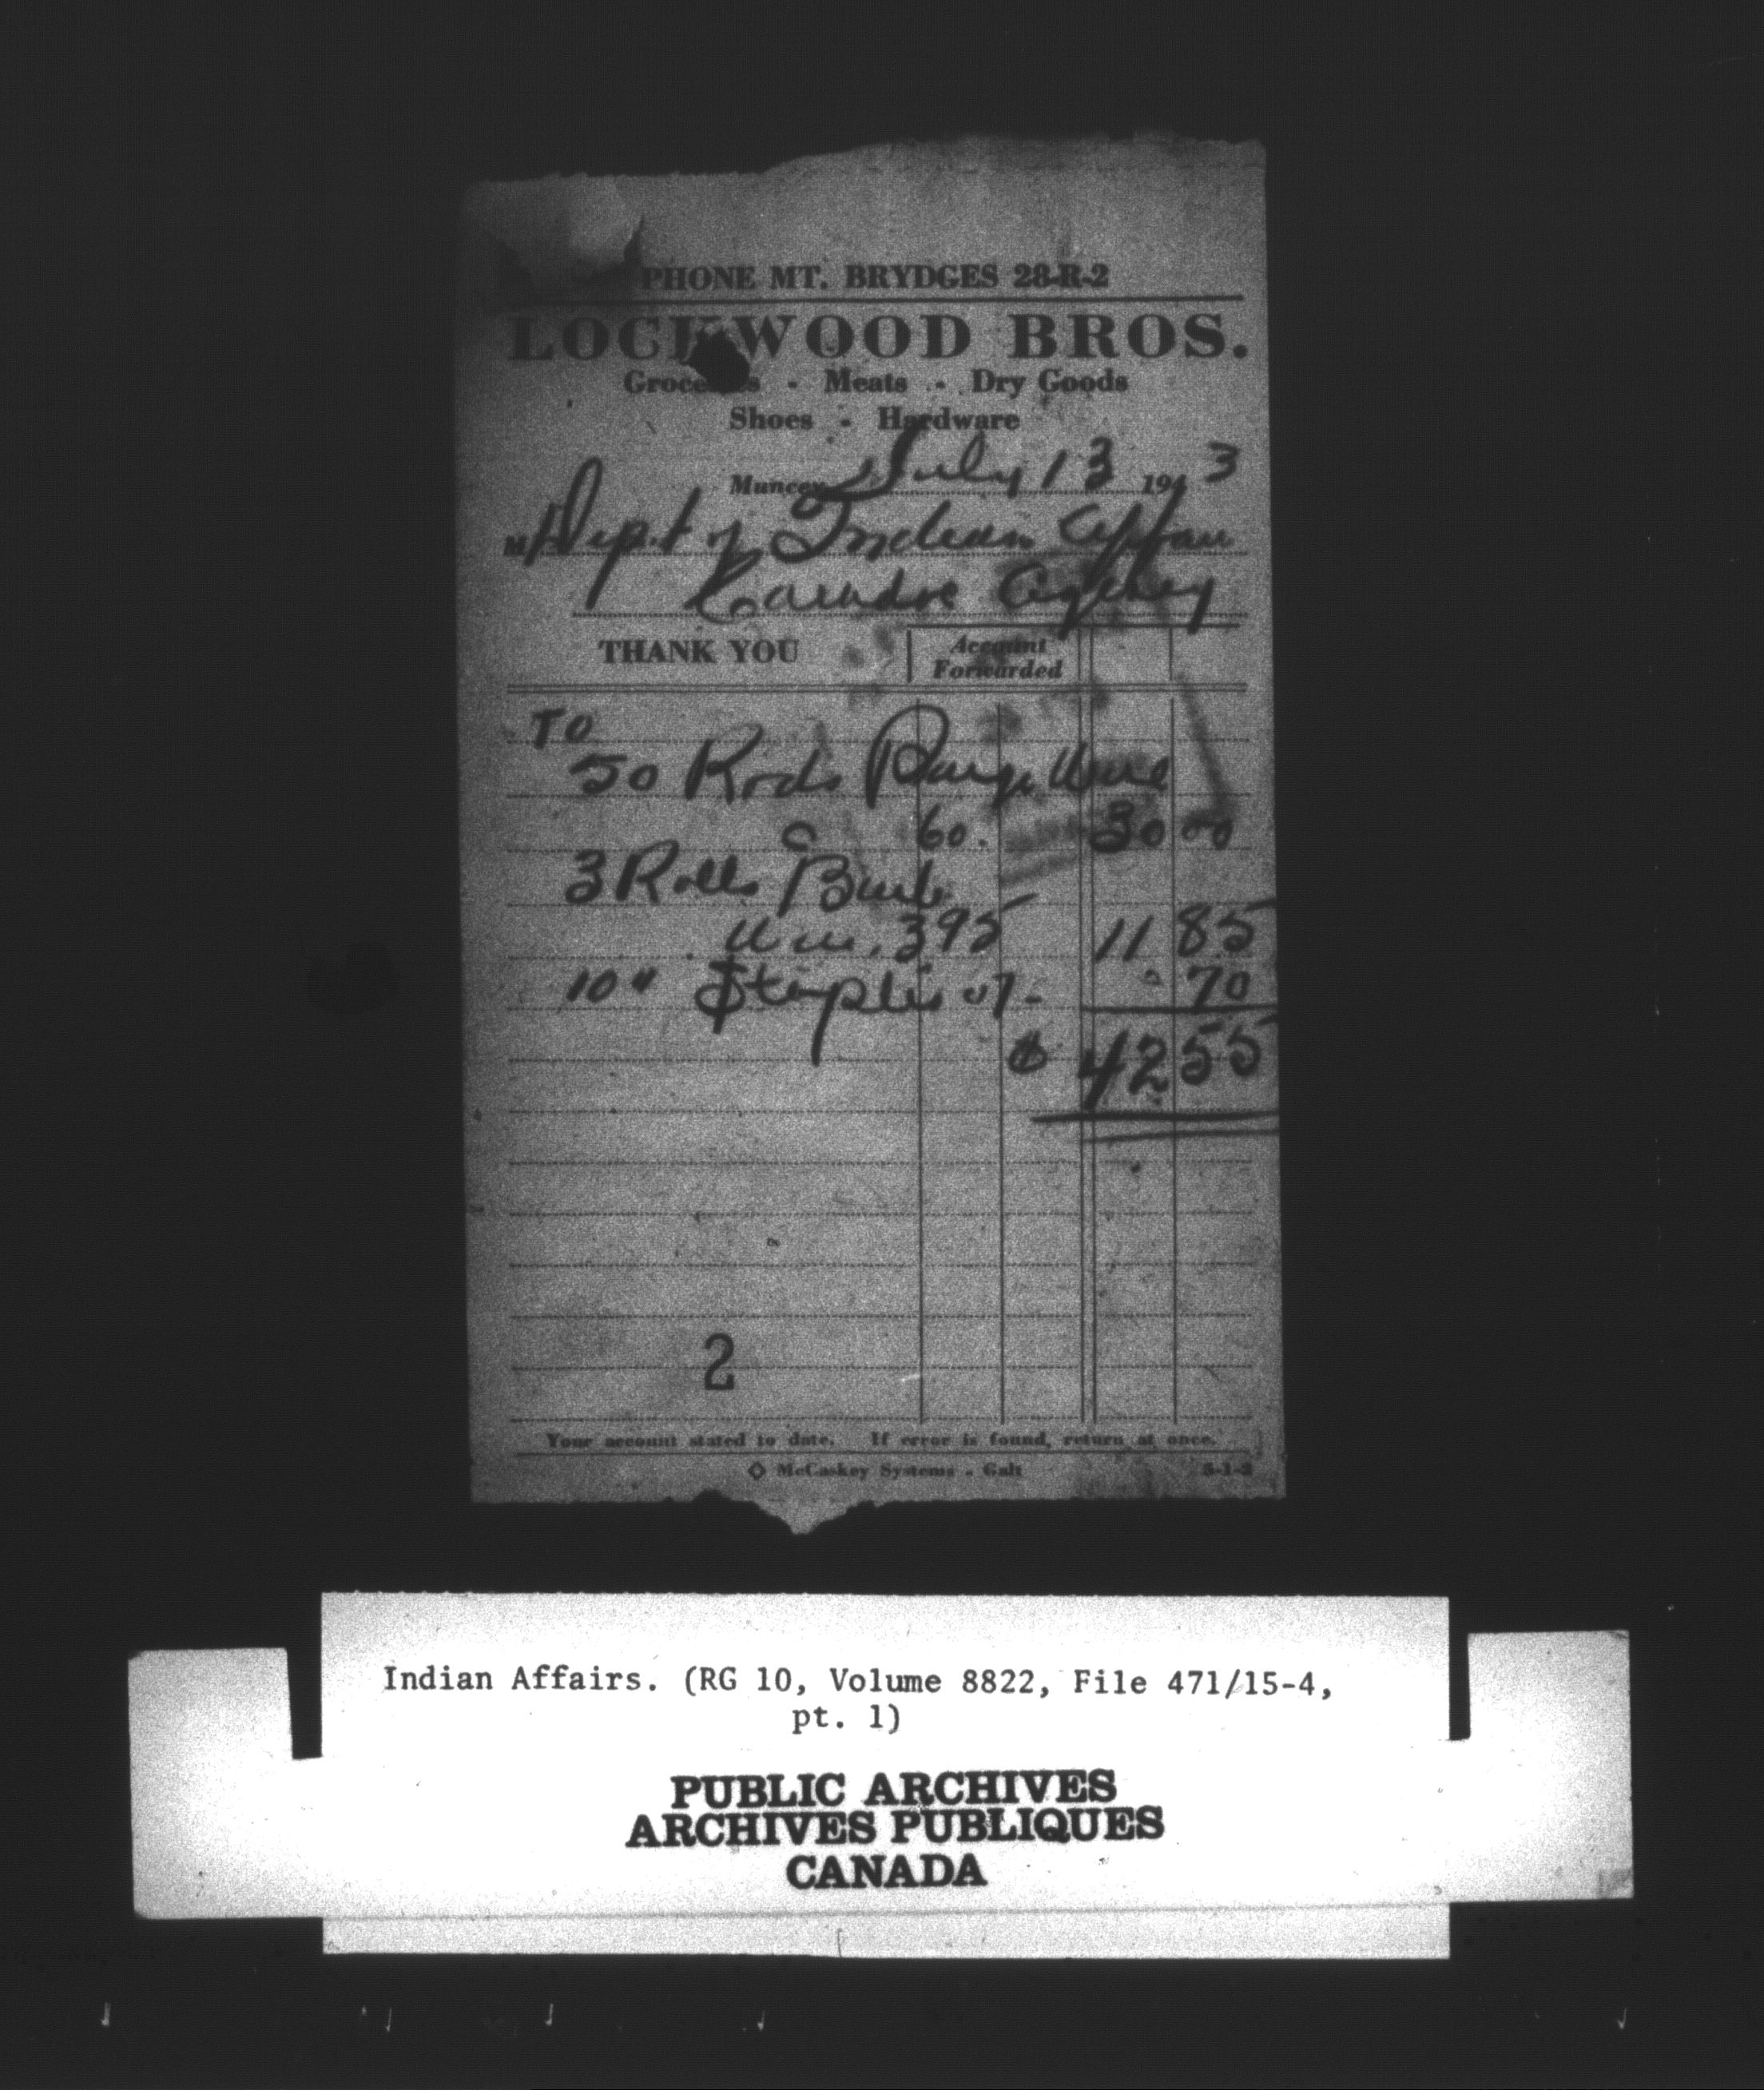 PHONE MT. BRYDGES 28-R-2
LOCKWOOD BROS.
Groceries - Meats - Dry Goods
Shoes - Hardware
Muncey July 13 1943
M Dept of Indian Affairs
Caradoc Agency
THANK YOU
Account
Forwarded
To
50 Rods Page Wire
@ 60. 30 00
3 Rolls Barb
Wire, 395 11 85
10 " Staples 07- 70
$ 42 55
2
Your account stated to date. If error is found, return at once.
McCaskey Systems - Galt 5-1-2
Indian Affairs. (RG 10, Volume 8822, File 471/15-4,
pt. 1)
PUBLIC ARCHIVES
ARCHIVES PUBLIQUES
CANADA